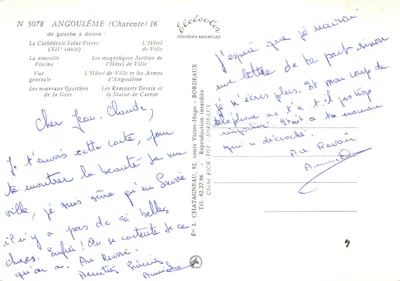 N 5078 ANGOULÊME (Charente) 16
de gauche à droite :
La Cathédrale Saint-Pierre
(XIIe siècle)
L'Hôtel
de Ville
La nouvelle
Piscine
Les magnifiques Jardins de
l'Hôtel de Ville
Vue
générale
L'Hôtel de Ville et les Armes
d'Angoulême
Les nouveaux Quartiers
de la Gare
Les Remparts Desaix et
la Statue de Carnot
COULEURS NATURELLES
Cher Jean-Claude,
Je t'envois cette carte, pour
te montrer la beauté de ma
ville, je suis sûre qu'en
il n'y a pas de si belles
choses. Enfin! On se contente de ce
qu'on a. Au revoir.
Amitiés
Éts J. CHATAGNEAU, 92, cours Victor-Hugo - BORDEAUX
Tél. 92.27.96 - Reproduction interdite
J'espère que je n'aurai
une lettre de ta part sinon
je n'écris plus. Et mon coup de
téléphone ne t'a-t-il pas trop
. C'était à ta maman
qui a décroché.
Au Revoir